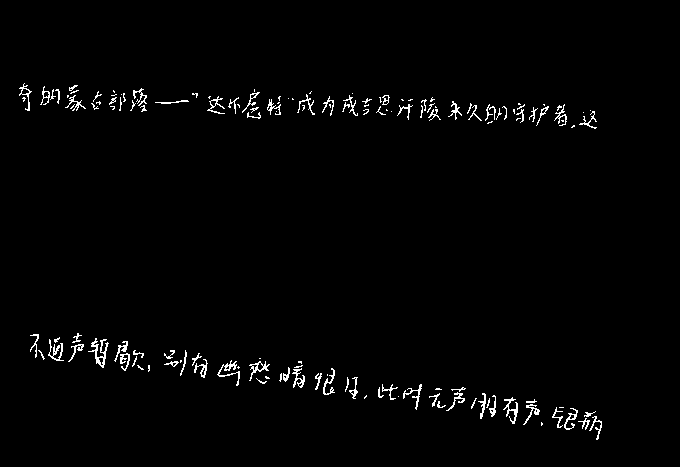 奇的蒙古部落——"达尔扈特"成为成吉思汗陵永久的守护者,这
不通声暂歇,别有幽愁暗恨生,此时无声胜有声,银瓶